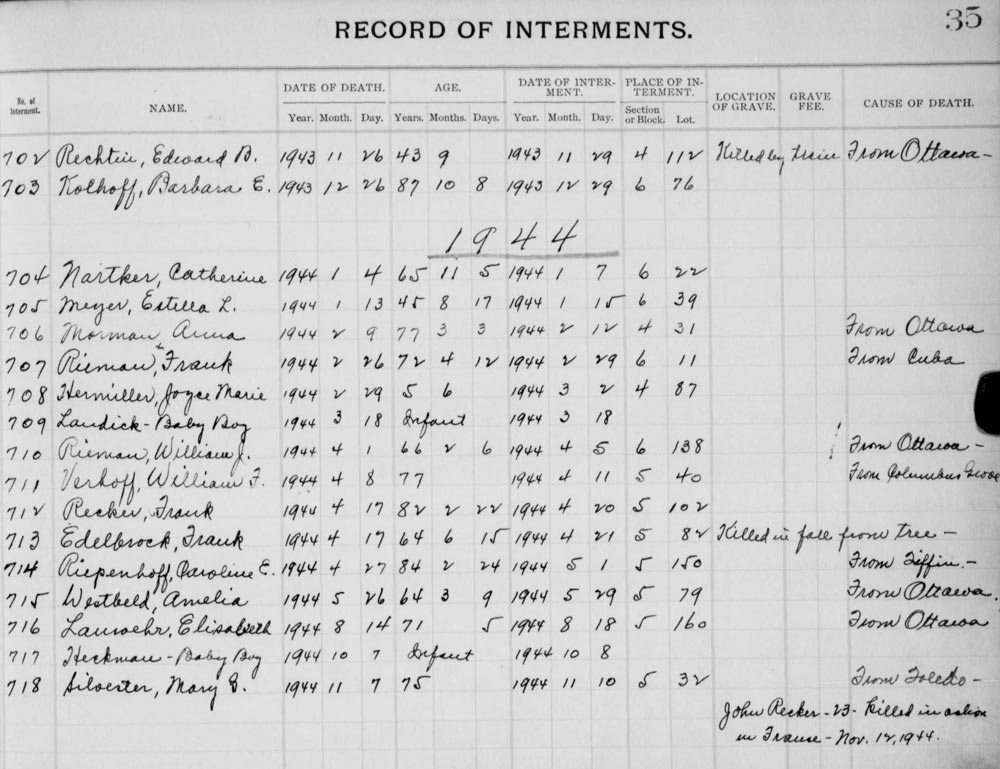 35
RECORD OF INTERMENTS.
No. of Interment. NAME. DATE OF DEATH. Year. Month. Day. AGE. Years. Months. Days. DATE OF INTERMENT. Year. Month. Day. PLACE OF INTERMENT. Section or Block. Lot. LOCATION OF GRAVE. GRAVE FEE. CAUSE OF DEATH.
702 Rechtin, Edward B. 1943 11 26 43 9 1943 11 29 4 112 Killed by train From Ottawa -
703 Kolhoff, Barbara E. 1943 12 26 87 10 8 1943 12 29 6 76
1944
704 Nartker, Catherine 1944 1 4 65 11 5 1944 1 7 6 22
705 Meyer, Estella L. 1944 1 13 45 8 17 1944 1 15 6 39
706 Morman, Anna 1944 2 9 77 3 3 1944 2 12 4 31 From Ottawa
707 Rieman, Frank 1944 2 26 72 4 12 1944 2 29 6 11 From Cuba
708 Hermiller, Joyce Marie 1944 2 29 5 6 1944 3 2 4 87
709 Landick - Baby Boy 1944 3 18 Infant 1944 3 18
710 Rieman, William J. 1944 4 1 66 2 6 1944 4 5 6 138 From Ottawa -
711 Verhoff, William F. 1944 4 8 77 1944 4 11 5 40 From Columbus Grove
712 Recker, Frank 1944 4 17 82 2 22 1944 4 20 5 102
713 Edelbrock, Frank 1944 4 17 64 6 15 1944 4 21 5 82 Killed in fall from tree -
714 Riepenhoff, Caroline E. 1944 4 27 84 2 24 1944 5 1 5 150 From Tiffin. -
715 Westbeld, Amelia 1944 5 26 64 3 9 1944 5 29 5 79 From Ottawa.
716 Lauwehr, Elisabeth 1944 8 14 71 5 1944 8 18 5 160 From Ottawa
717 Heckman - Baby Boy 1944 10 7 Infant 1944 10 8
718 Silvester, Mary E. 1944 11 7 75 1944 11 10 5 32 From Toledo -
John Recker - 23 - Killed in action
in France - Nov. 12, 1944.